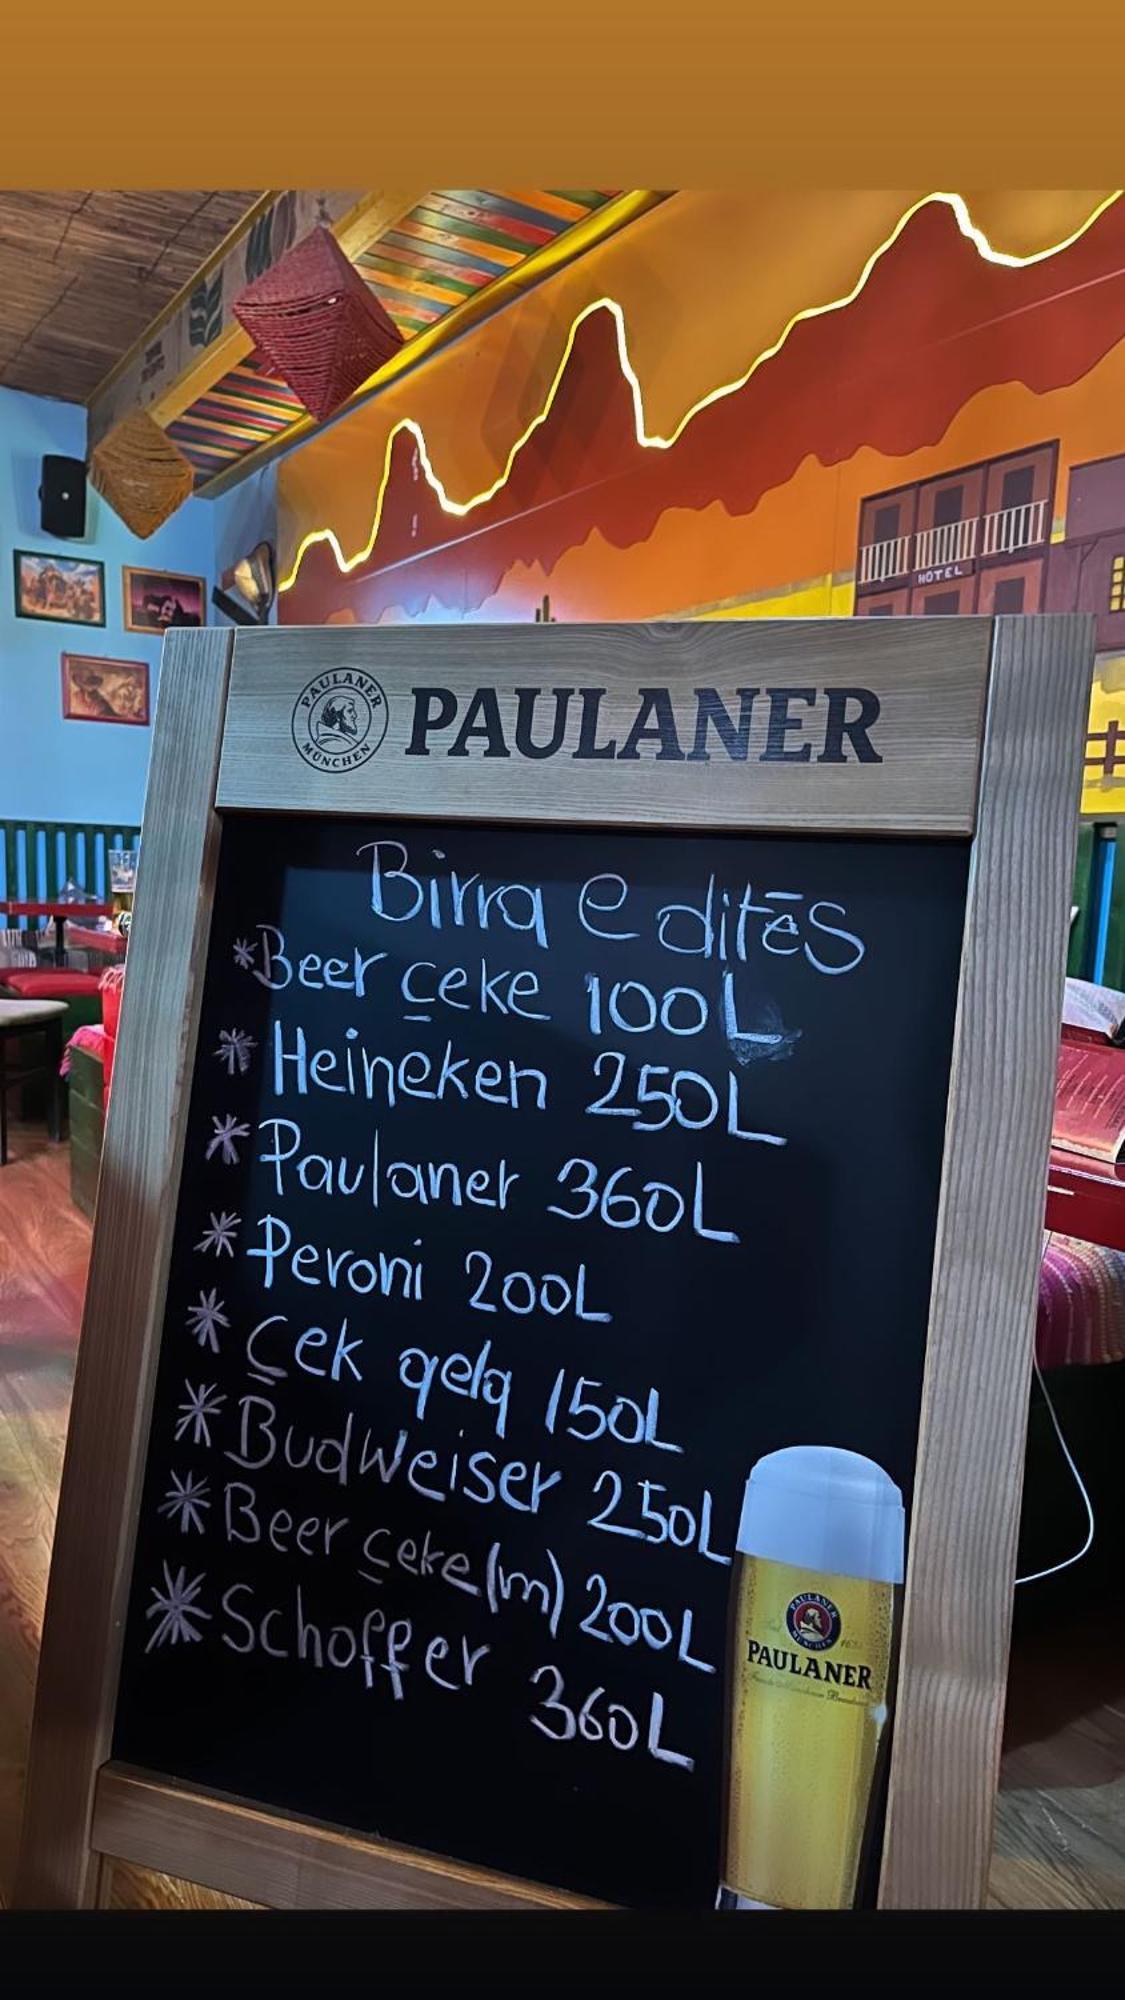 HOTEL
PAULANER
MÜNCHEN
PAULANER
Birra e ditēs
*Beer çeke 100L
* Heineken 250L
* Paulaner 360L
* Peroni 200L
* Çek qelq 150L
* Budweiser 250L
* Beer çeke(m) 200L
* Schoffer 360L
PAULANER
PAULANER